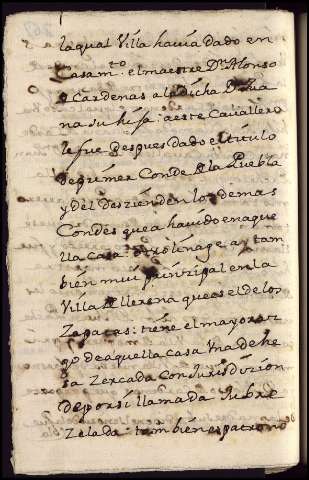 la qual Villa havia dado en
Casam.to el maestre D.n Alonso
de Cardenas a la dicha D. Jua
na su hija: a este Cavallero
le fue despues dado el titulo
de primer Conde de la Puebla
y del deszienden los demas
Condes que a havido en aque
lla Casa: otro linage ay tam
bien mui prinzipal en la
Villa de Llerena que es el de los
Zapatas: tiene el mayoraz
go de aquella casa Una dehe
sa Zercada con Jurisdizion
de por si llamada Jubre
Zelada: tambien es patrono